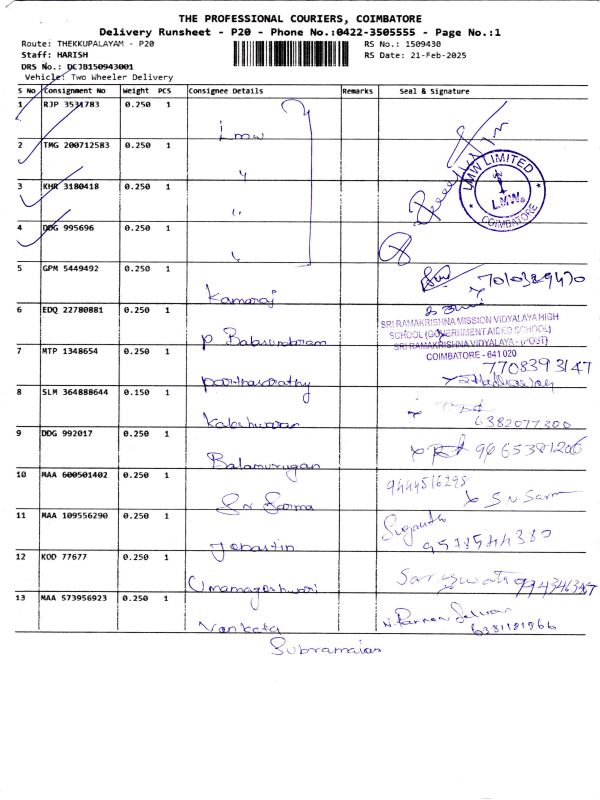 THE PROFESSIONAL COURIERS, COIMBATORE
Delivery Runsheet - P20 - Phone No.:0422-3505555 - Page No.:1
Route: THEKKUPALAYAM - P20 RS No.: 1509430
Staff: HARISH RS Date: 21-Feb-2025
DRS No.: DCJB150943001
Vehicle: Two Wheeler Delivery
S No Consignment No Weight PCS Consignee Details Remarks Seal & Signature
1 RJP 3531783 0.250 1
Lmw
2 TMG 200712583 0.250 1
LMW LIMITED
3 KHR 3180418 0.250 1
L.MW.
COIMBATORE
4 DDG 995696 0.250 1
5 GPM 5449492 0.250 1
Kamaraj 7010389470
6 EDQ 22780881 0.250 1
SRI RAMAKRISHNA MISSION VIDYALAYA HIGH
SCHOOL (GOVERNMENT AIDED SCHOOL)
P Balasundaram
SRI RAMAKRISHNA VIDYALAYA - (POST)
COIMBATORE - 641 020
7 MTP 1348654 0.250 1
7708393147
parthasarathy
8 SLM 364888644 0.150 1
Kaleshwaran 6382077300
9 DDG 992017 0.250 1
9665381206
Balamurugan
10 MAA 600501402 0.250 1
9444516298
S.N Sarma S.N. Sarm
11 MAA 109556290 0.250 1
Suganthi
Jebastin 9578544380
12 KOD 77677 0.250 1
Saraswathi
Umamageshwari
13 MAA 573956923 0.250 1
Vankata 6381181866
Subramaian